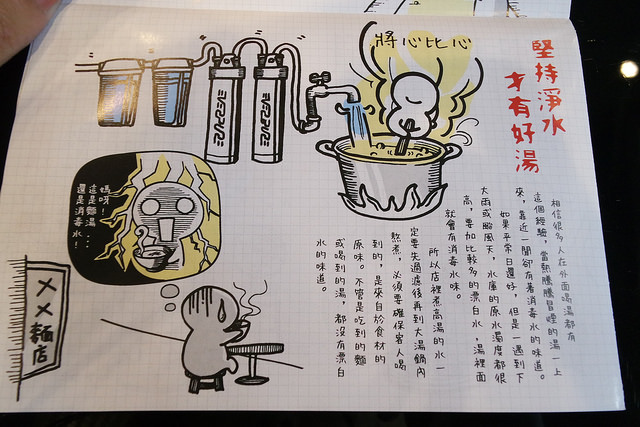 堅持淨水
才有好湯
將心比心
EVERPURE
EVERPURE
相信很多人在外面喝湯都有
這個經驗，當熱騰騰冒煙的湯一上
來，靠近一聞卻有著消毒水的味道。
如果平常日還好，但是一遇到下
大雨或颱風天，水庫的原水濁度都很
高，要加比較多的漂白水，湯裡面
就會有消毒水味。
所以店裡煮高湯的水一
定要先過濾後再到大湯鍋內
熬煮，必須要確保客人喝
到的，是來自於食材的
原味。不管是吃到的麵
或喝到的湯，都沒有漂白
水的味道。
媽呀！
這是麵湯...
還是消毒水！
XX麵店